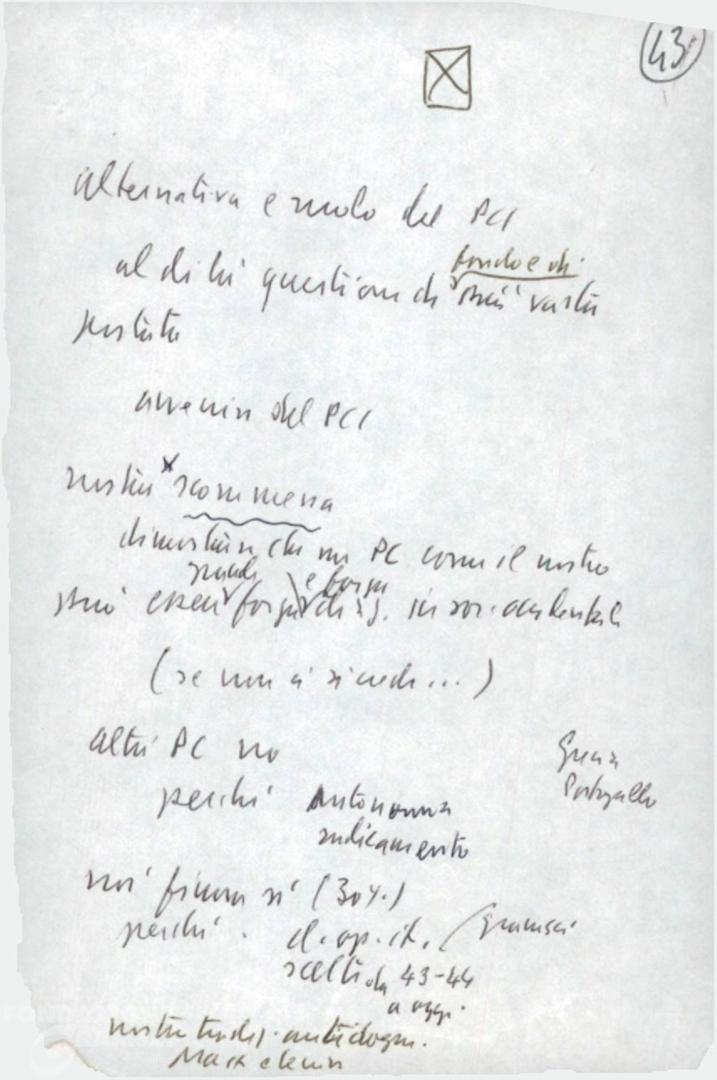 43
alternativa e ruolo del PCI
al di là questioni di più vasta
fondo e di
portata
avvenire del PCI
nostra scommessa
dimostrare che un PC come il nostro
grande e forza
può essere forza di g. in soc. occidentale
(se non ci si crede...)
Altri PC no
Grecia
Portogallo
perché autonomia
radicamento
noi finora sì (30%)
perché. cl. op. it. / Gramsci
scelte da 43-44
a oggi.
nostra trad. antidogm.
Marx e Lenin